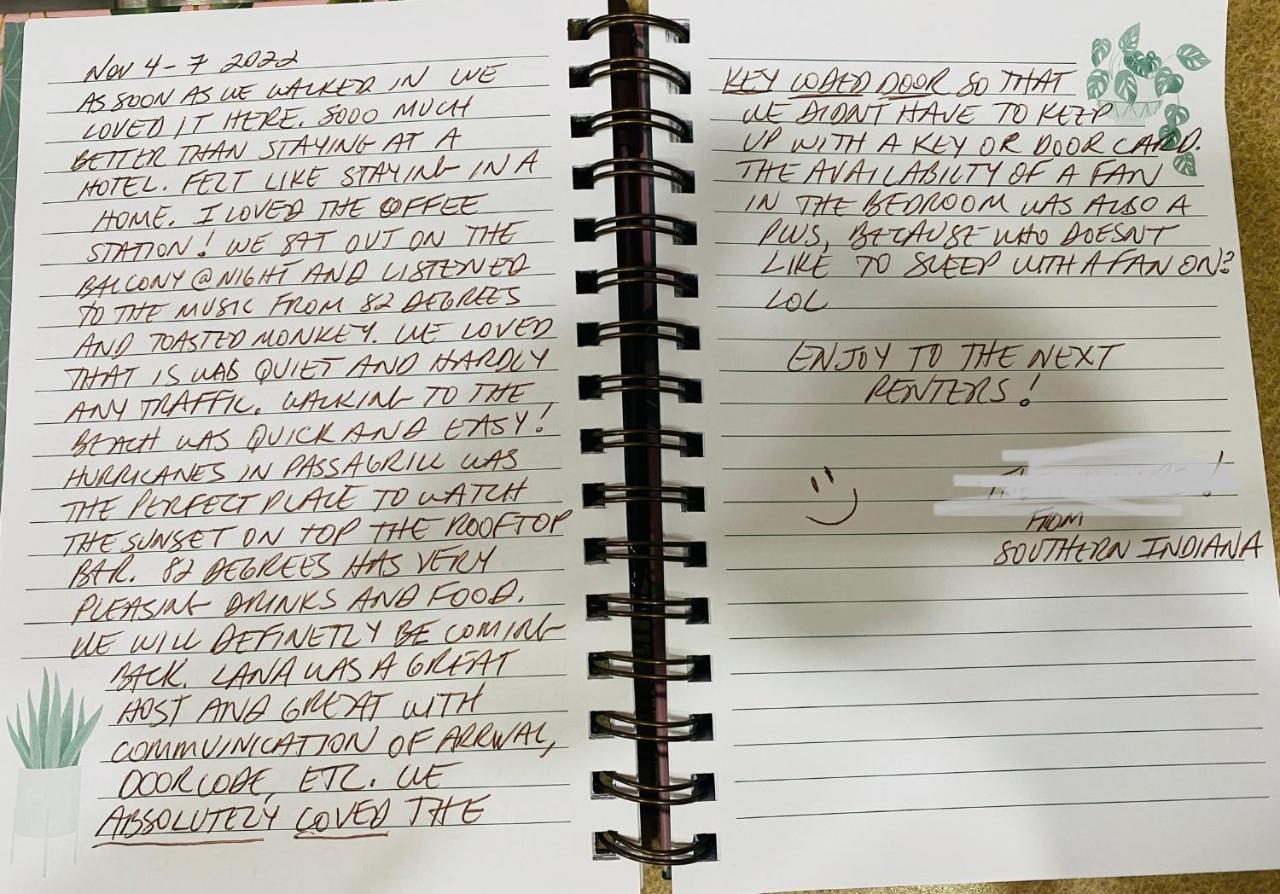 NOV 4-7 2022
AS SOON AS WE WALKED IN WE
LOVED IT HERE. SOOO MUCH
BETTER THAN STAYING AT A
HOTEL. FELT LIKE STAYING IN A
HOME. I LOVED THE COFFEE
STATION! WE SAT OUT ON THE
BALCONY @ NIGHT AND LISTENED
TO THE MUSIC FROM 82 DEGREES
AND TOASTED MONKEY. WE LOVED
THAT IS WAS QUIET AND HARDLY
ANY TRAFFIC. WALKING TO THE
BEACH WAS QUICK AND EASY!
HURRICANES IN PASSAGRILL WAS
THE PERFECT PLACE TO WATCH
THE SUNSET ON TOP THE ROOFTOP
BAR. 82 DEGREES HAS VERY
PLEASING DRINKS AND FOOD.
WE WILL DEFINETLY BE COMING
BACK. LANA WAS A GREAT
HOST AND GREAT WITH
COMMUINICATION OF ARRIVAL,
DOOR CODE, ETC. WE
ABSOLUTELY LOVED THE
KEY CODED DOOR SO THAT
WE DIDNT HAVE TO KEEP
UP WITH A KEY OR DOOR CARD.
THE AVAILABILTY OF A FAN
IN THE BEDROOM WAS ALSO A
PLUS, BECAUSE WHO DOESNT
LIKE TO SLEEP WITH A FAN ON?
LOL
ENJOY TO THE NEXT
RENTERS!
FROM
SOUTHERN INDIANA